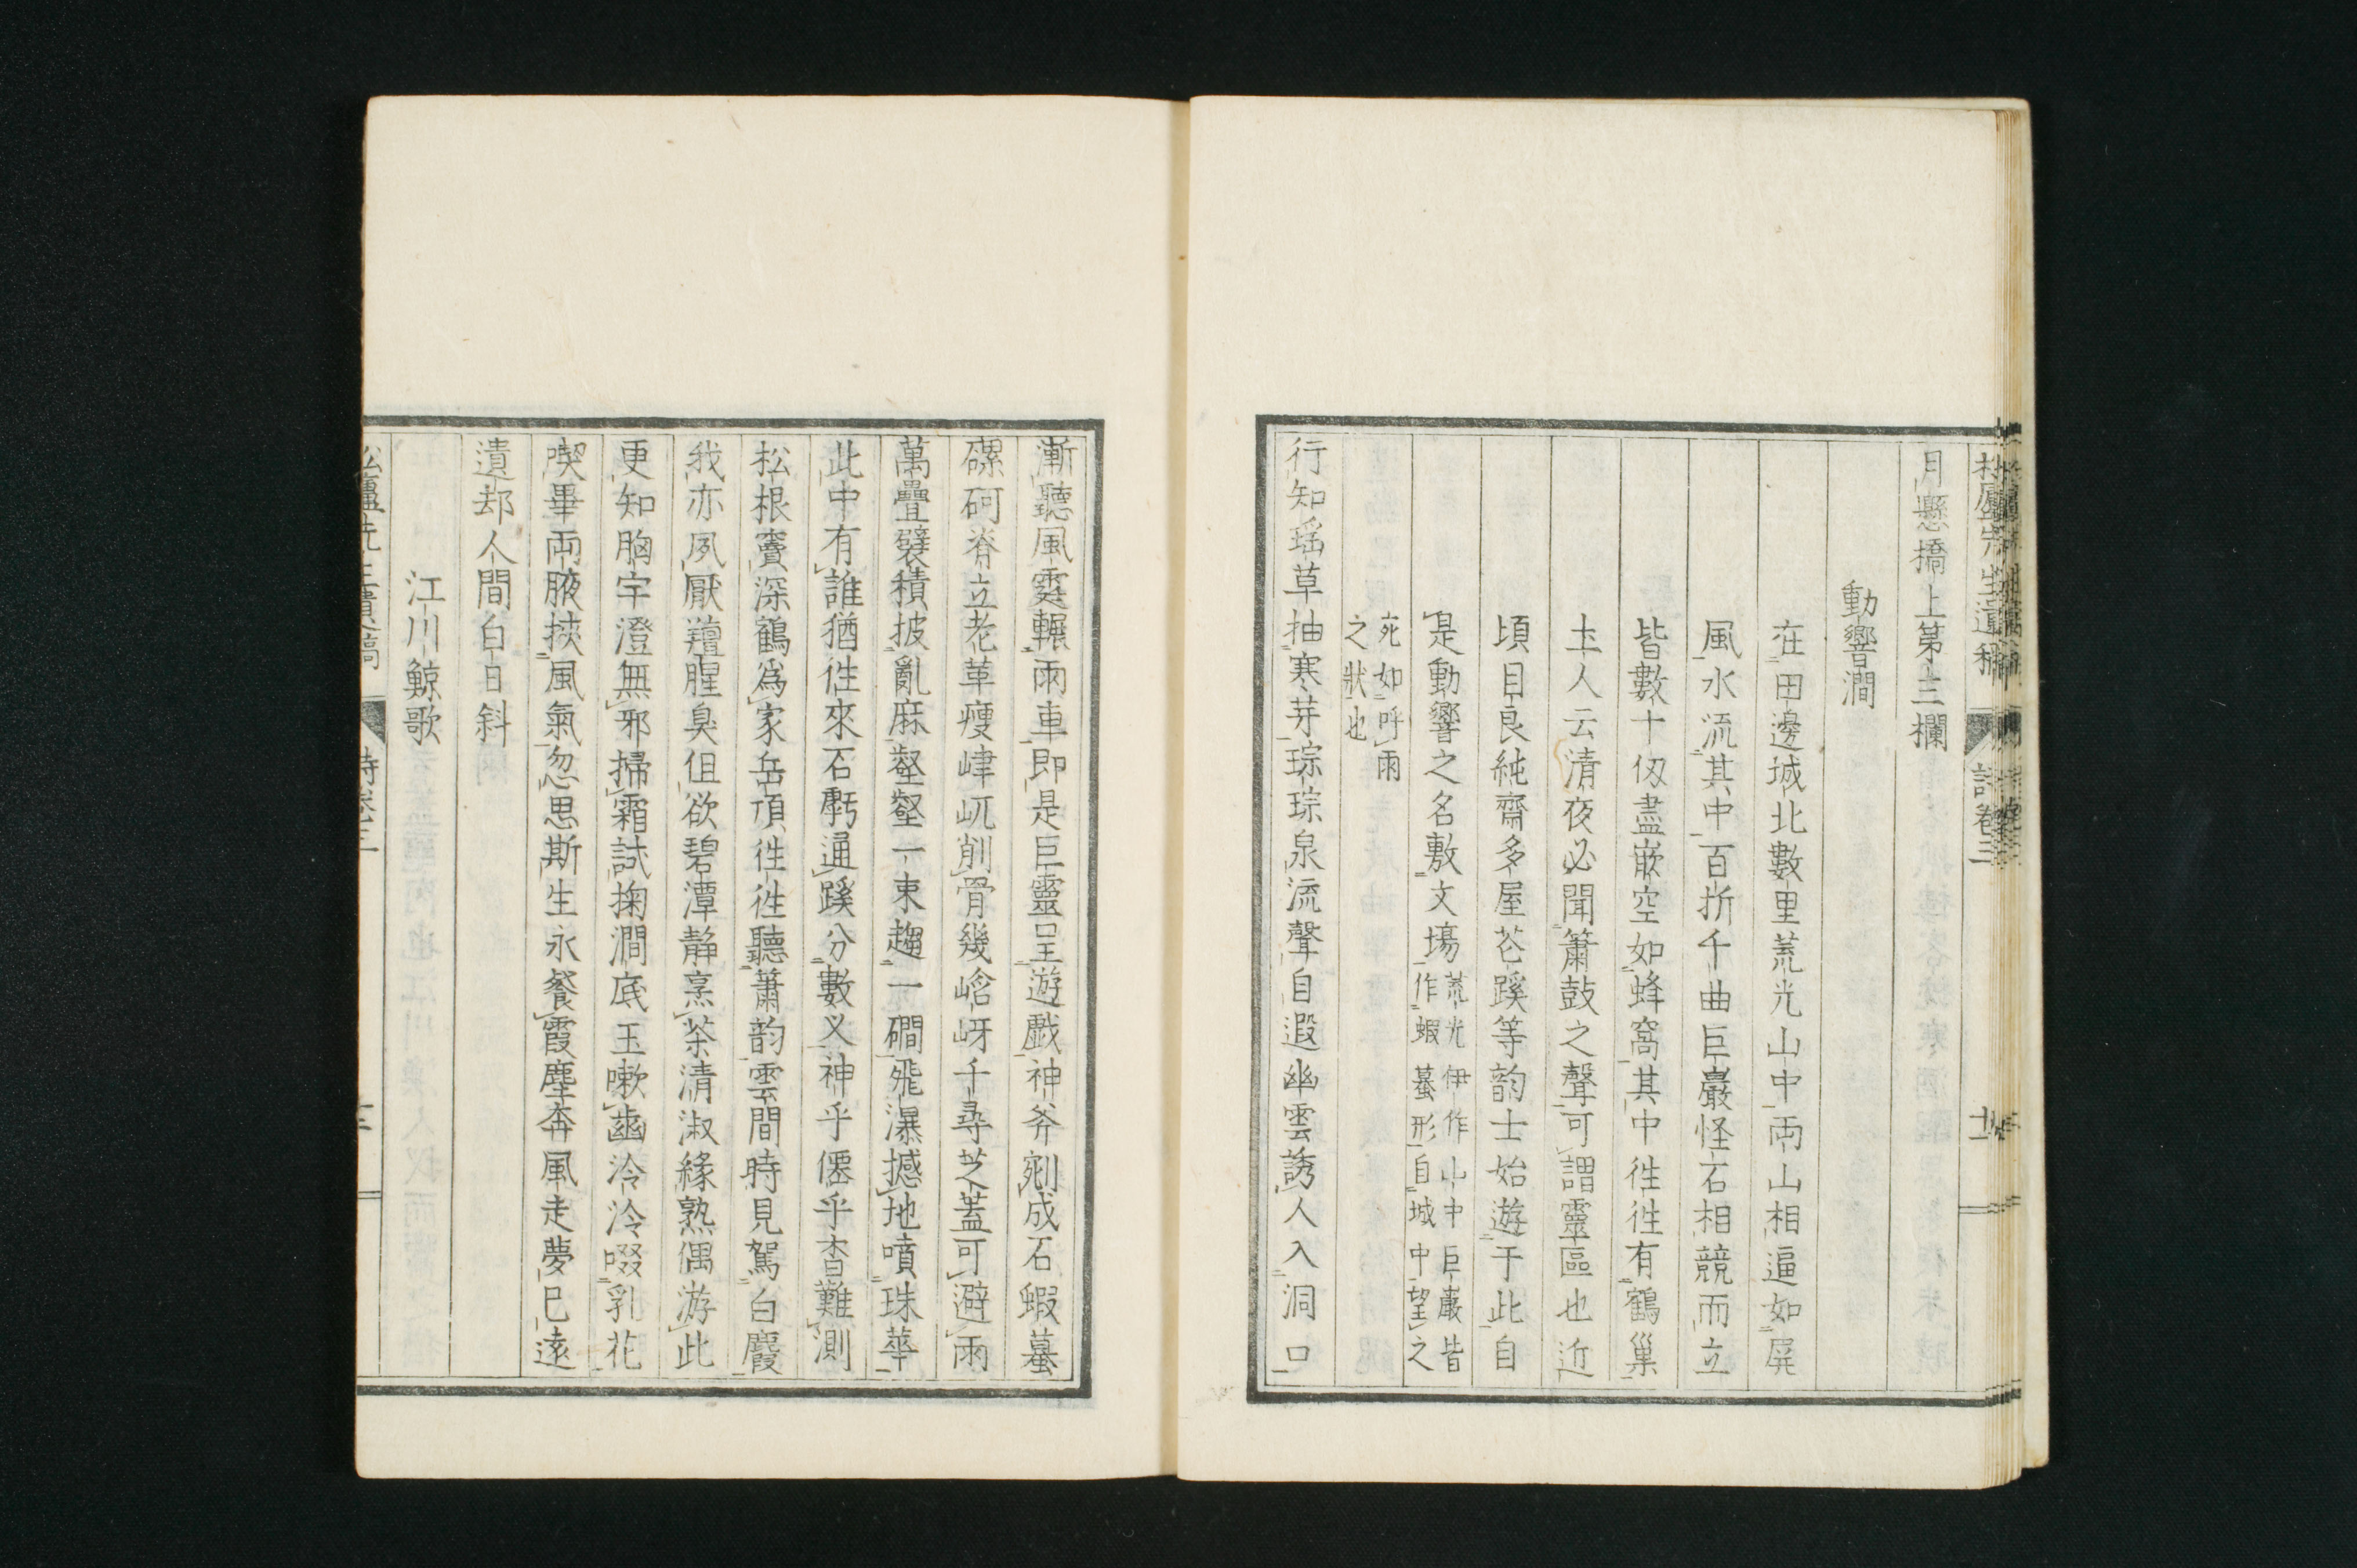 月懸橋上第三欄
動響澗
在田邊城北數里荒光山中兩山相逼如屏
風水流其中百折千曲巨巖怪石相競而立
皆數十仭盡嵌空如蜂窩其中徃徃有鶴巢
土人云清夜必聞簫鼓之聲可謂靈區也近
頃目良純齋多屋芯蹊等韵士始遊于此自
是動響之名敷文塲
荒光伊作山中巨巖皆
作蝦蟇形自城中望之
宛如呼雨
之狀也
行知瑶草抽寒芽琮琮泉流聲自遐幽雲誘人入洞口
漸聽風霆輾雨車即是巨靈呈遊戲神斧剜成石蝦蟇
磥砢脊立老革瘦峍屼削骨幾㟏岈千尋芝蓋可避雨
萬疊襞積披亂麻壑壑一束趨一磵飛瀑撼地噴珠華
此中有誰猶徃來石虧通蹊分數义神乎僊乎杳難測
松根竇深鶴爲家岳頂徃徃聽簫韵雲間時見駕白麚
我亦夙厭羶腥臭但欲碧潭靜烹茶清淑緣熟偶游此
更知胸宇澄無邪掃霜試掬澗底玉嗽齒泠泠啜乳花
喫畢兩腋挾風氣忽思斯生永餐霞塵奔風走夢已遠
遺却人間白日斜
江川鯨歌
松廬先生遺稿
詩卷三